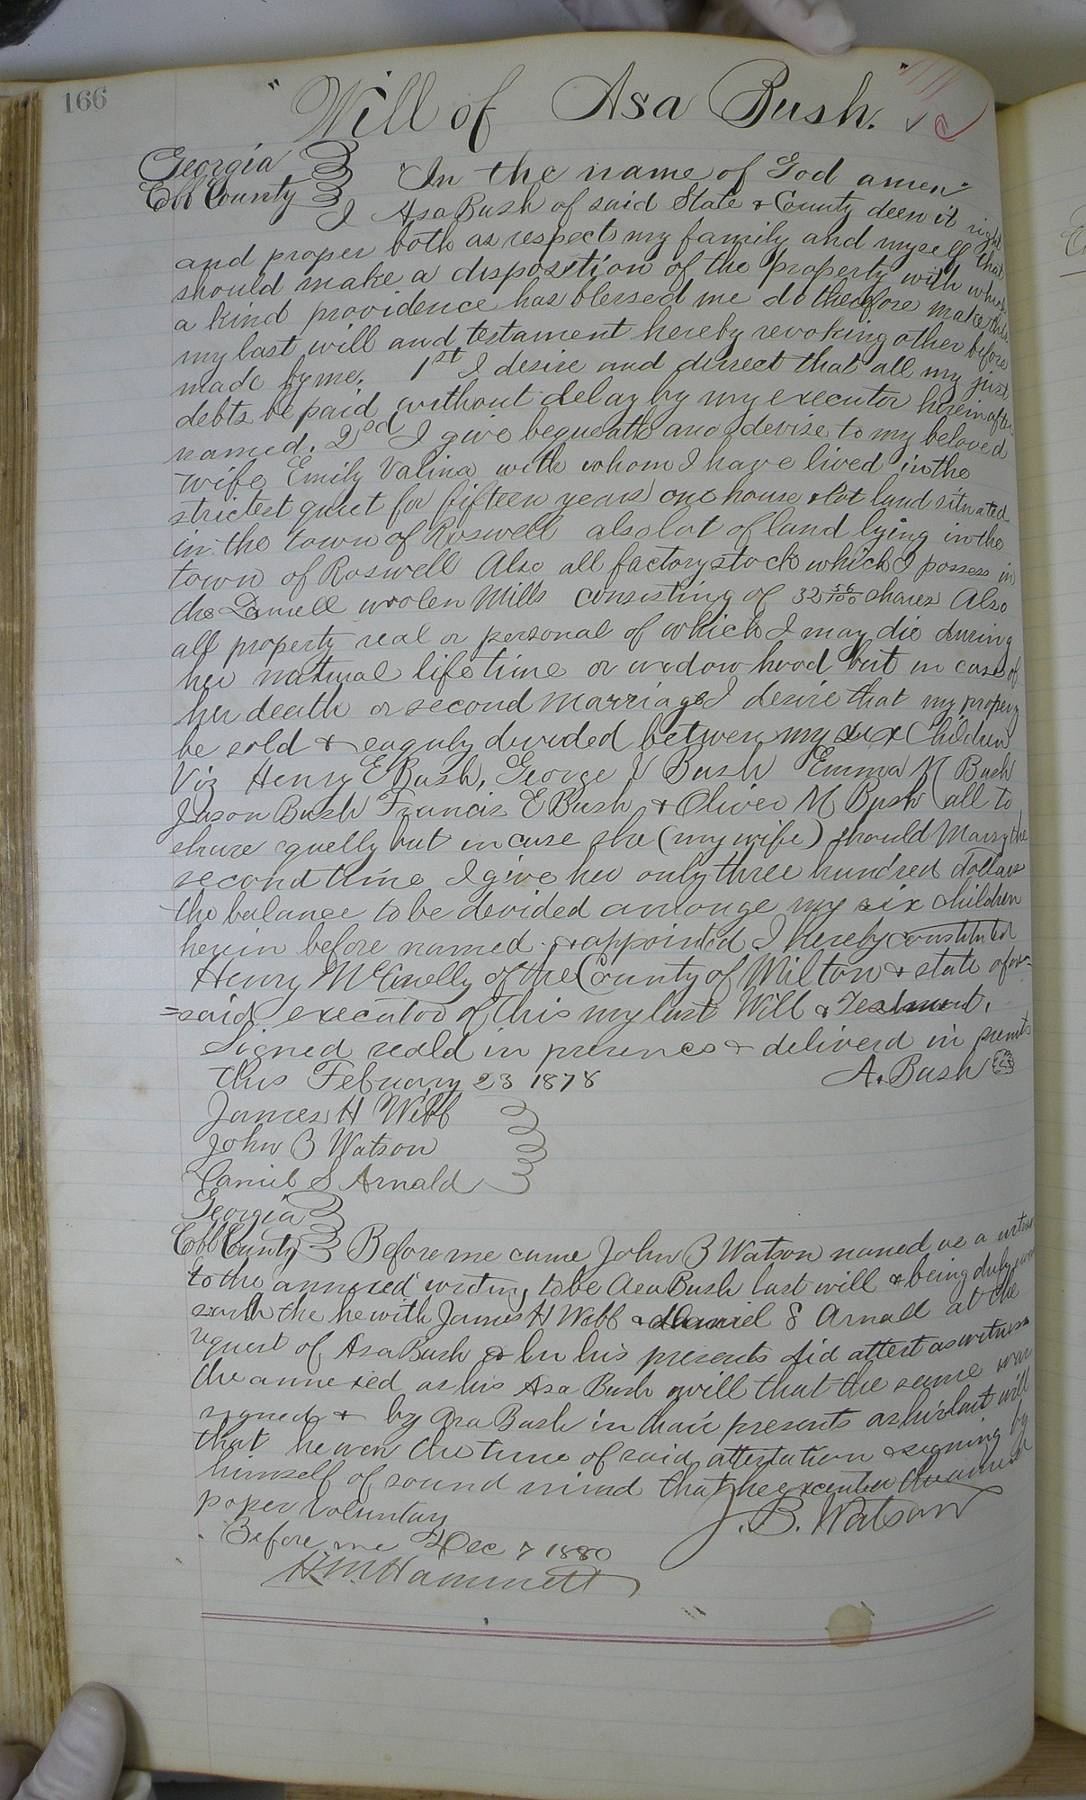 166
"Will of Asa Bush."
Georgia
Cobb County "In the name of God amen"
I Asa Bush of said State & County deen it right
and proper both as respects my family and myself that
should make a disposition of the property with which
a kind providence has blessed me do therefore make this
my last will and testament hereby revoking other before
made by me. 1st I desire and dirrect that all my just
debts be paid without delay by my executor herein after
named. 2nd I give bequeath and devise to my beloved
wife Emily Valina with whom I have lived in the
strictest quiet for fifteen years one house & lot land situated
in the town of Roswell also lot of land lying in the
town of Roswell Also all factory stock which I possess in
the Laurell woolen Mills consisting of 32 56/100 shares Also
all property real or personal of which I may die during
her natural life time or widow hood but in case of
her death or second marriage I desire that my property
be sold & eaquly devided between my six Children
Viz Henry E Bush, George V Bush Emma M Bush
Jason Bush Francis E Bush & Oliver M Bush all to
share equelly but in case she (my wife) should Marry the
second time I give her only three hundred dollars
the balance to be devided amonge my six children
herein before named. & appointed I hereby constituted
Henry McConelly of the County of Milton & state afore=
=said executor of this my last Will & Testment.
Signed seald in presence & deliverd in presents
this February 23 1878 A. Bush
James H Webb
John B Watson
Daniel S Arnald
Georgia
Cobb County Before me came John B Watson named as a witness
to the annexed writing to be Asa Bush last will & being duly sworn
saith the he with James H Webb & Daniel S Arnald at the
request of Asa Bush & in his presents did attest as witness
the annexed as his Asa Bush will that the same was
signed & by Asa Bush in thair presents as his last will
that he wen the time of said attestation & signing by
himself of sound mind that he executed the annexed
paper Voluntary J. B. Watson
Before me Dec 7 1880
H.M. Hammett